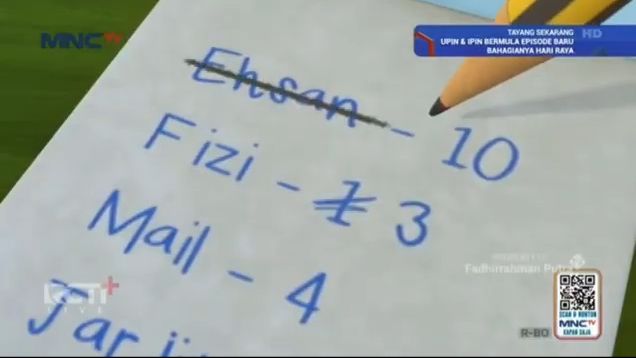 MNCTV
TAYANG SEKARANG
UPIN & IPIN BERMULA EPISODE BARU
BAHAGIANYA HARI RAYA
HD
Ehsan - 10
Fizi - 1 3
Mail - 4
Jarj
RCTI+
LIVE
Fadhirrahman
SCAN & NONTON
MNCTV
KAPAN SAJA
R-BO